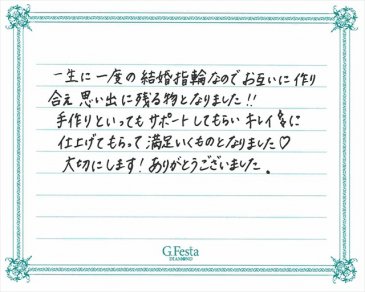 一生に一度の結婚指輪なのでお互いに作り
合え思い出に残る物となりました!!
手作りといってもサポートしてもらいキレイに
仕上げてもらって満足いくものとなりました♡
大切にします!ありがとうございました。
G.Festa
DIAMOND